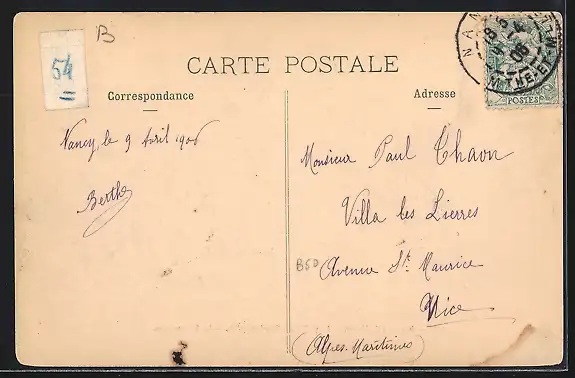 B
54
CARTE POSTALE
Correspondance
Adresse
POSTES
Nancy, le 9 Avril 1906
Berthe
Monsieur Paul Chaon
Villa les Lierres
B50
Avenue St. Maurice
Nice
(Alpes-Maritimes)